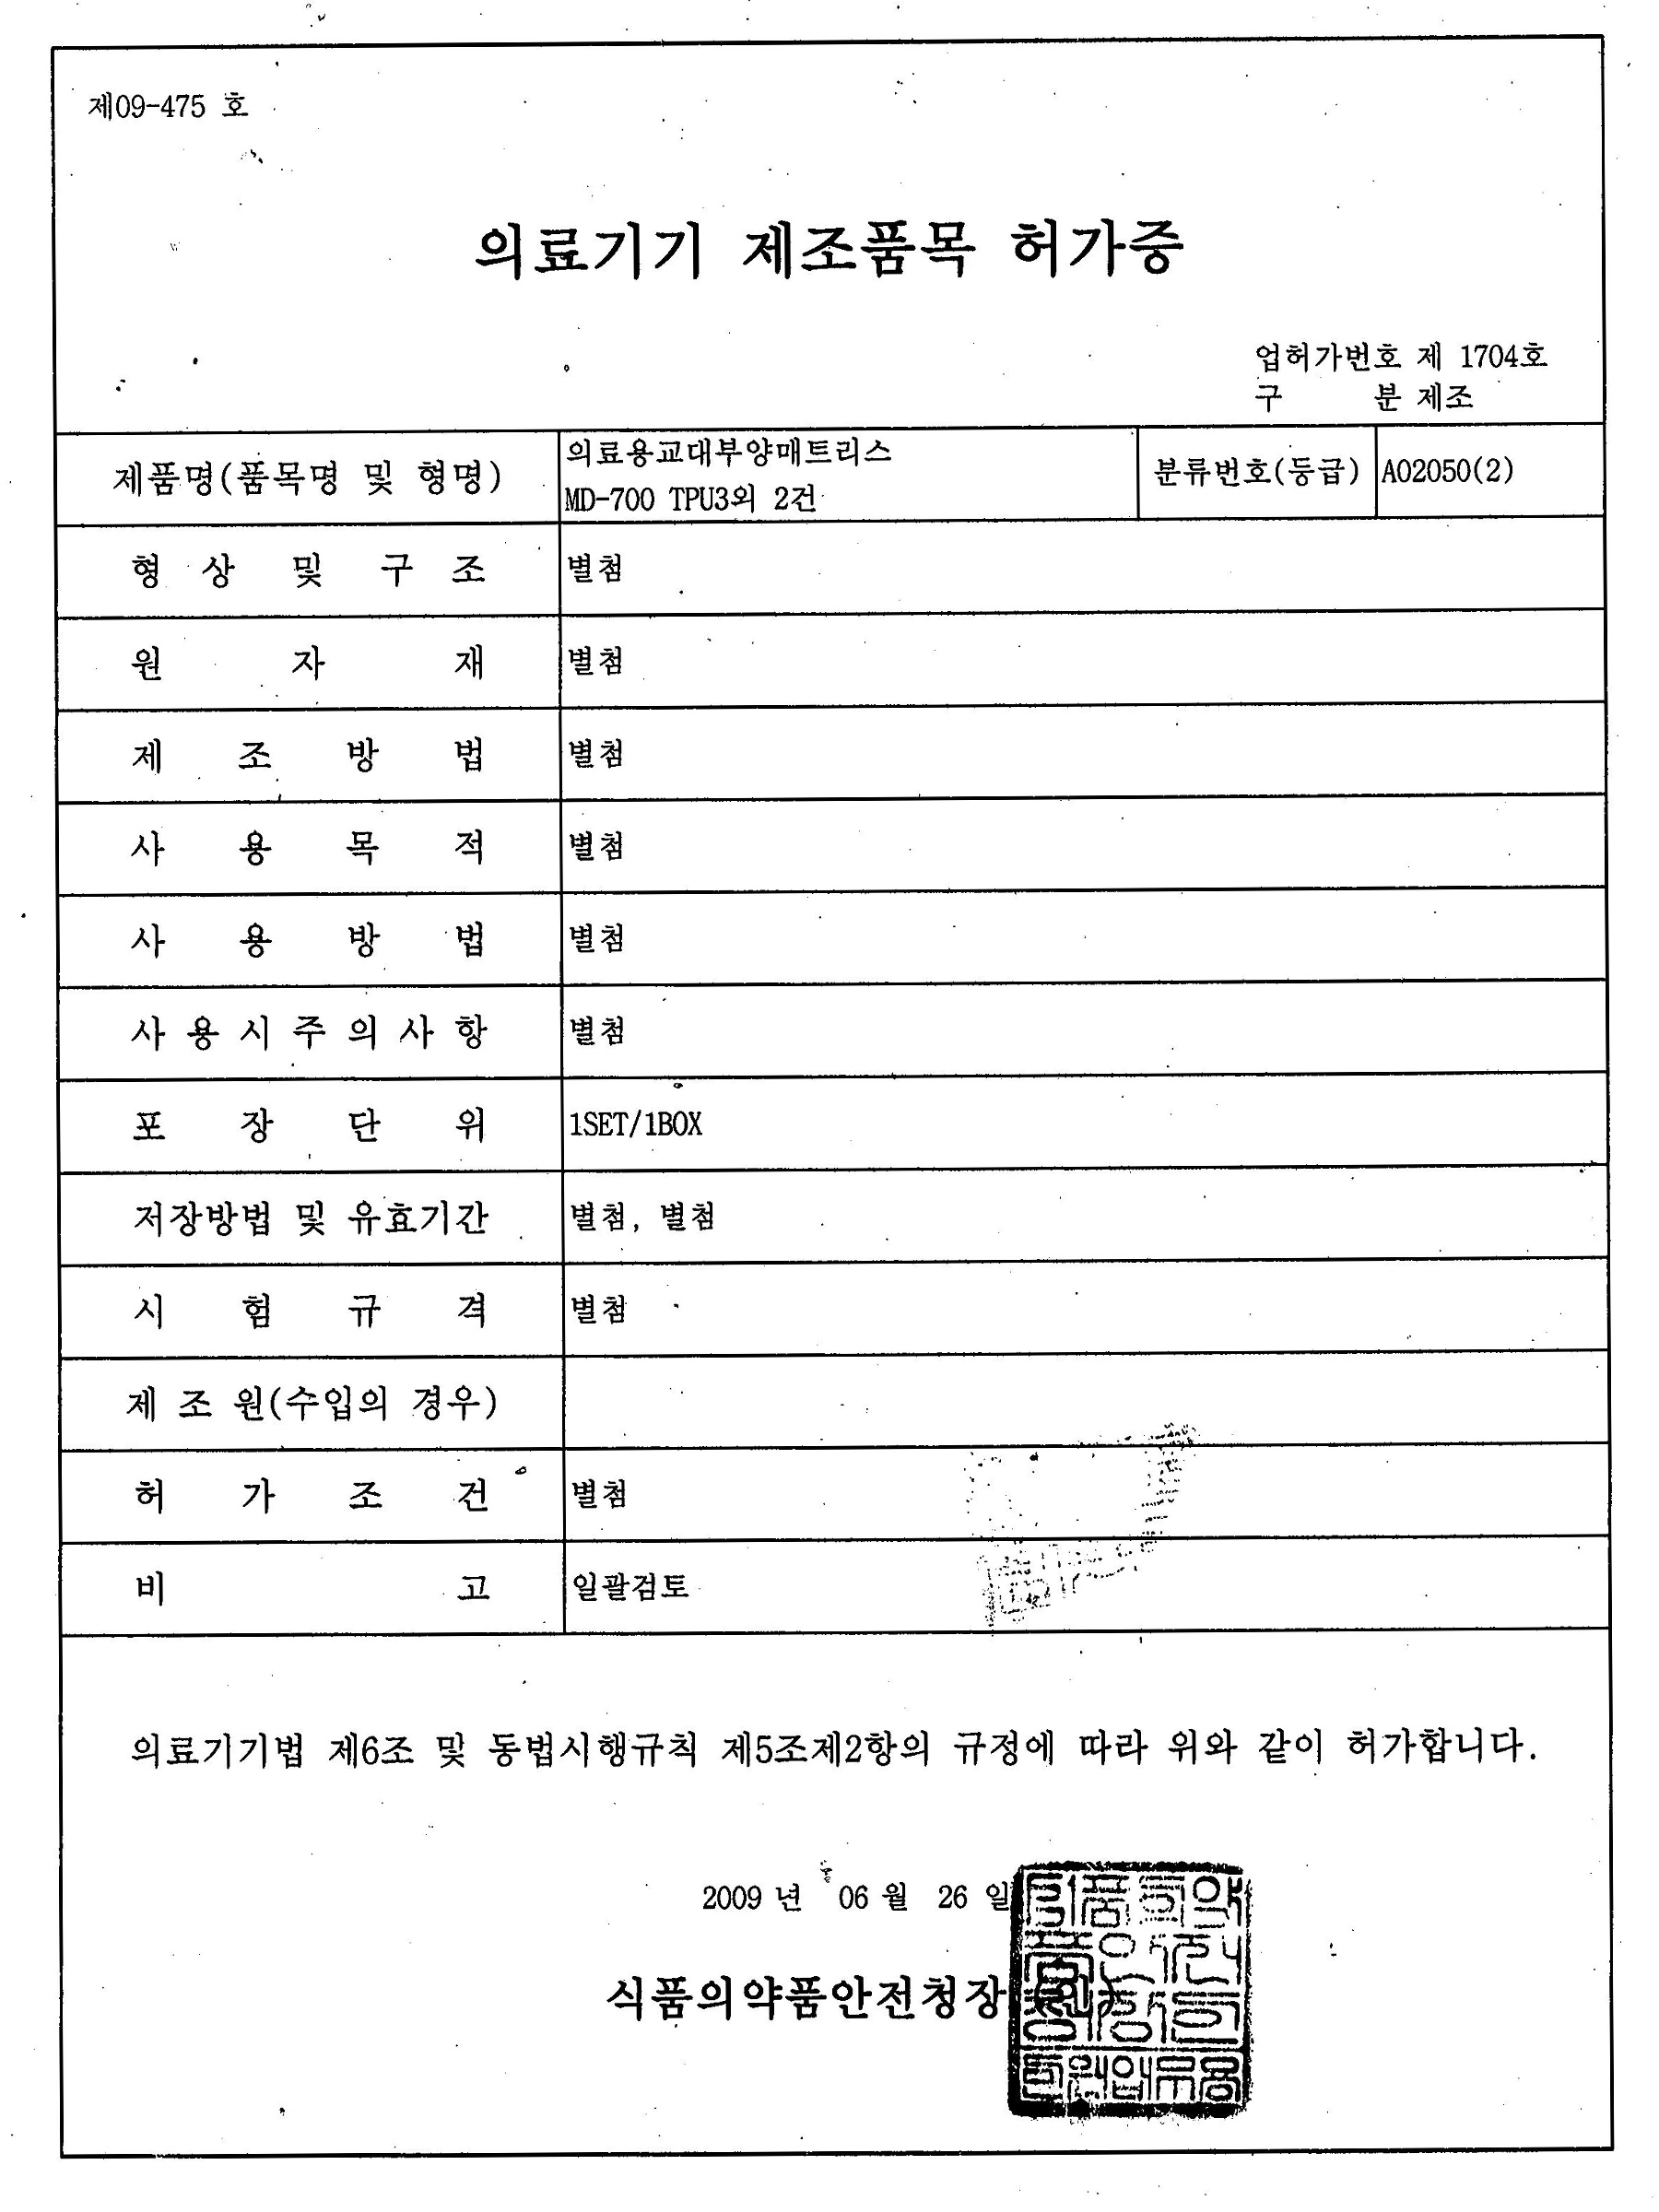 제09-475 호
의료기기 제조품목 허가증
업허가번호 제 1704호
구 분 제조
제품명(품목명 및 형명) 의료용교대부양매트리스 분류번호(등급) A02050(2)
MD-700 TPU3외 2건
형 상 및 구 조 별첨
원 자 재 별첨
제 조 방 법 별첨
사 용 목 적 별첨
사 용 방 법 별첨
사 용 시 주 의 사 항 별첨
포 장 단 위 1SET/1BOX
저장방법 및 유효기간 별첨, 별첨
시 험 규 격 별첨
제 조 원(수입의 경우)
허 가 조 건 별첨
비 고 일괄검토
의료기기법 제6조 및 동법시행규칙 제5조제2항의 규정에 따라 위와 같이 허가합니다.
2009 년 06 월 26 일
식품의약품안전청장